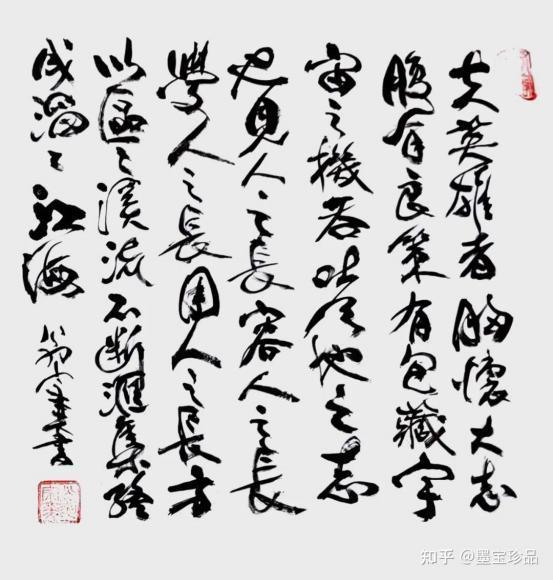 夫英雄者胸懷大志
腹有良策有包藏宇
宙之機吞吐天地之志
也見人之長容人之長
學人之長用人之長方
以區々溪流不斷匯集終
成滔々江海
書
知乎 @墨宝珍品